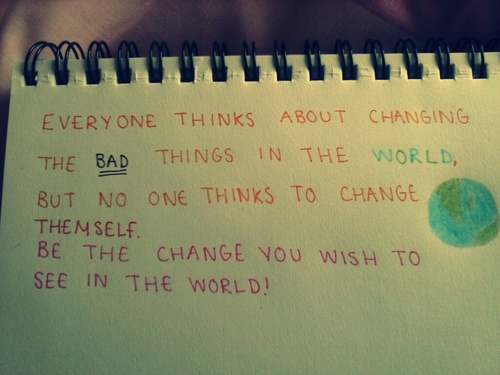 EVERYONE THINKS ABOUT CHANGING
THE BAD THINGS IN THE WORLD,
BUT NO ONE THINKS TO CHANGE
THEMSELF.
BE THE CHANGE YOU WISH TO
SEE IN THE WORLD!